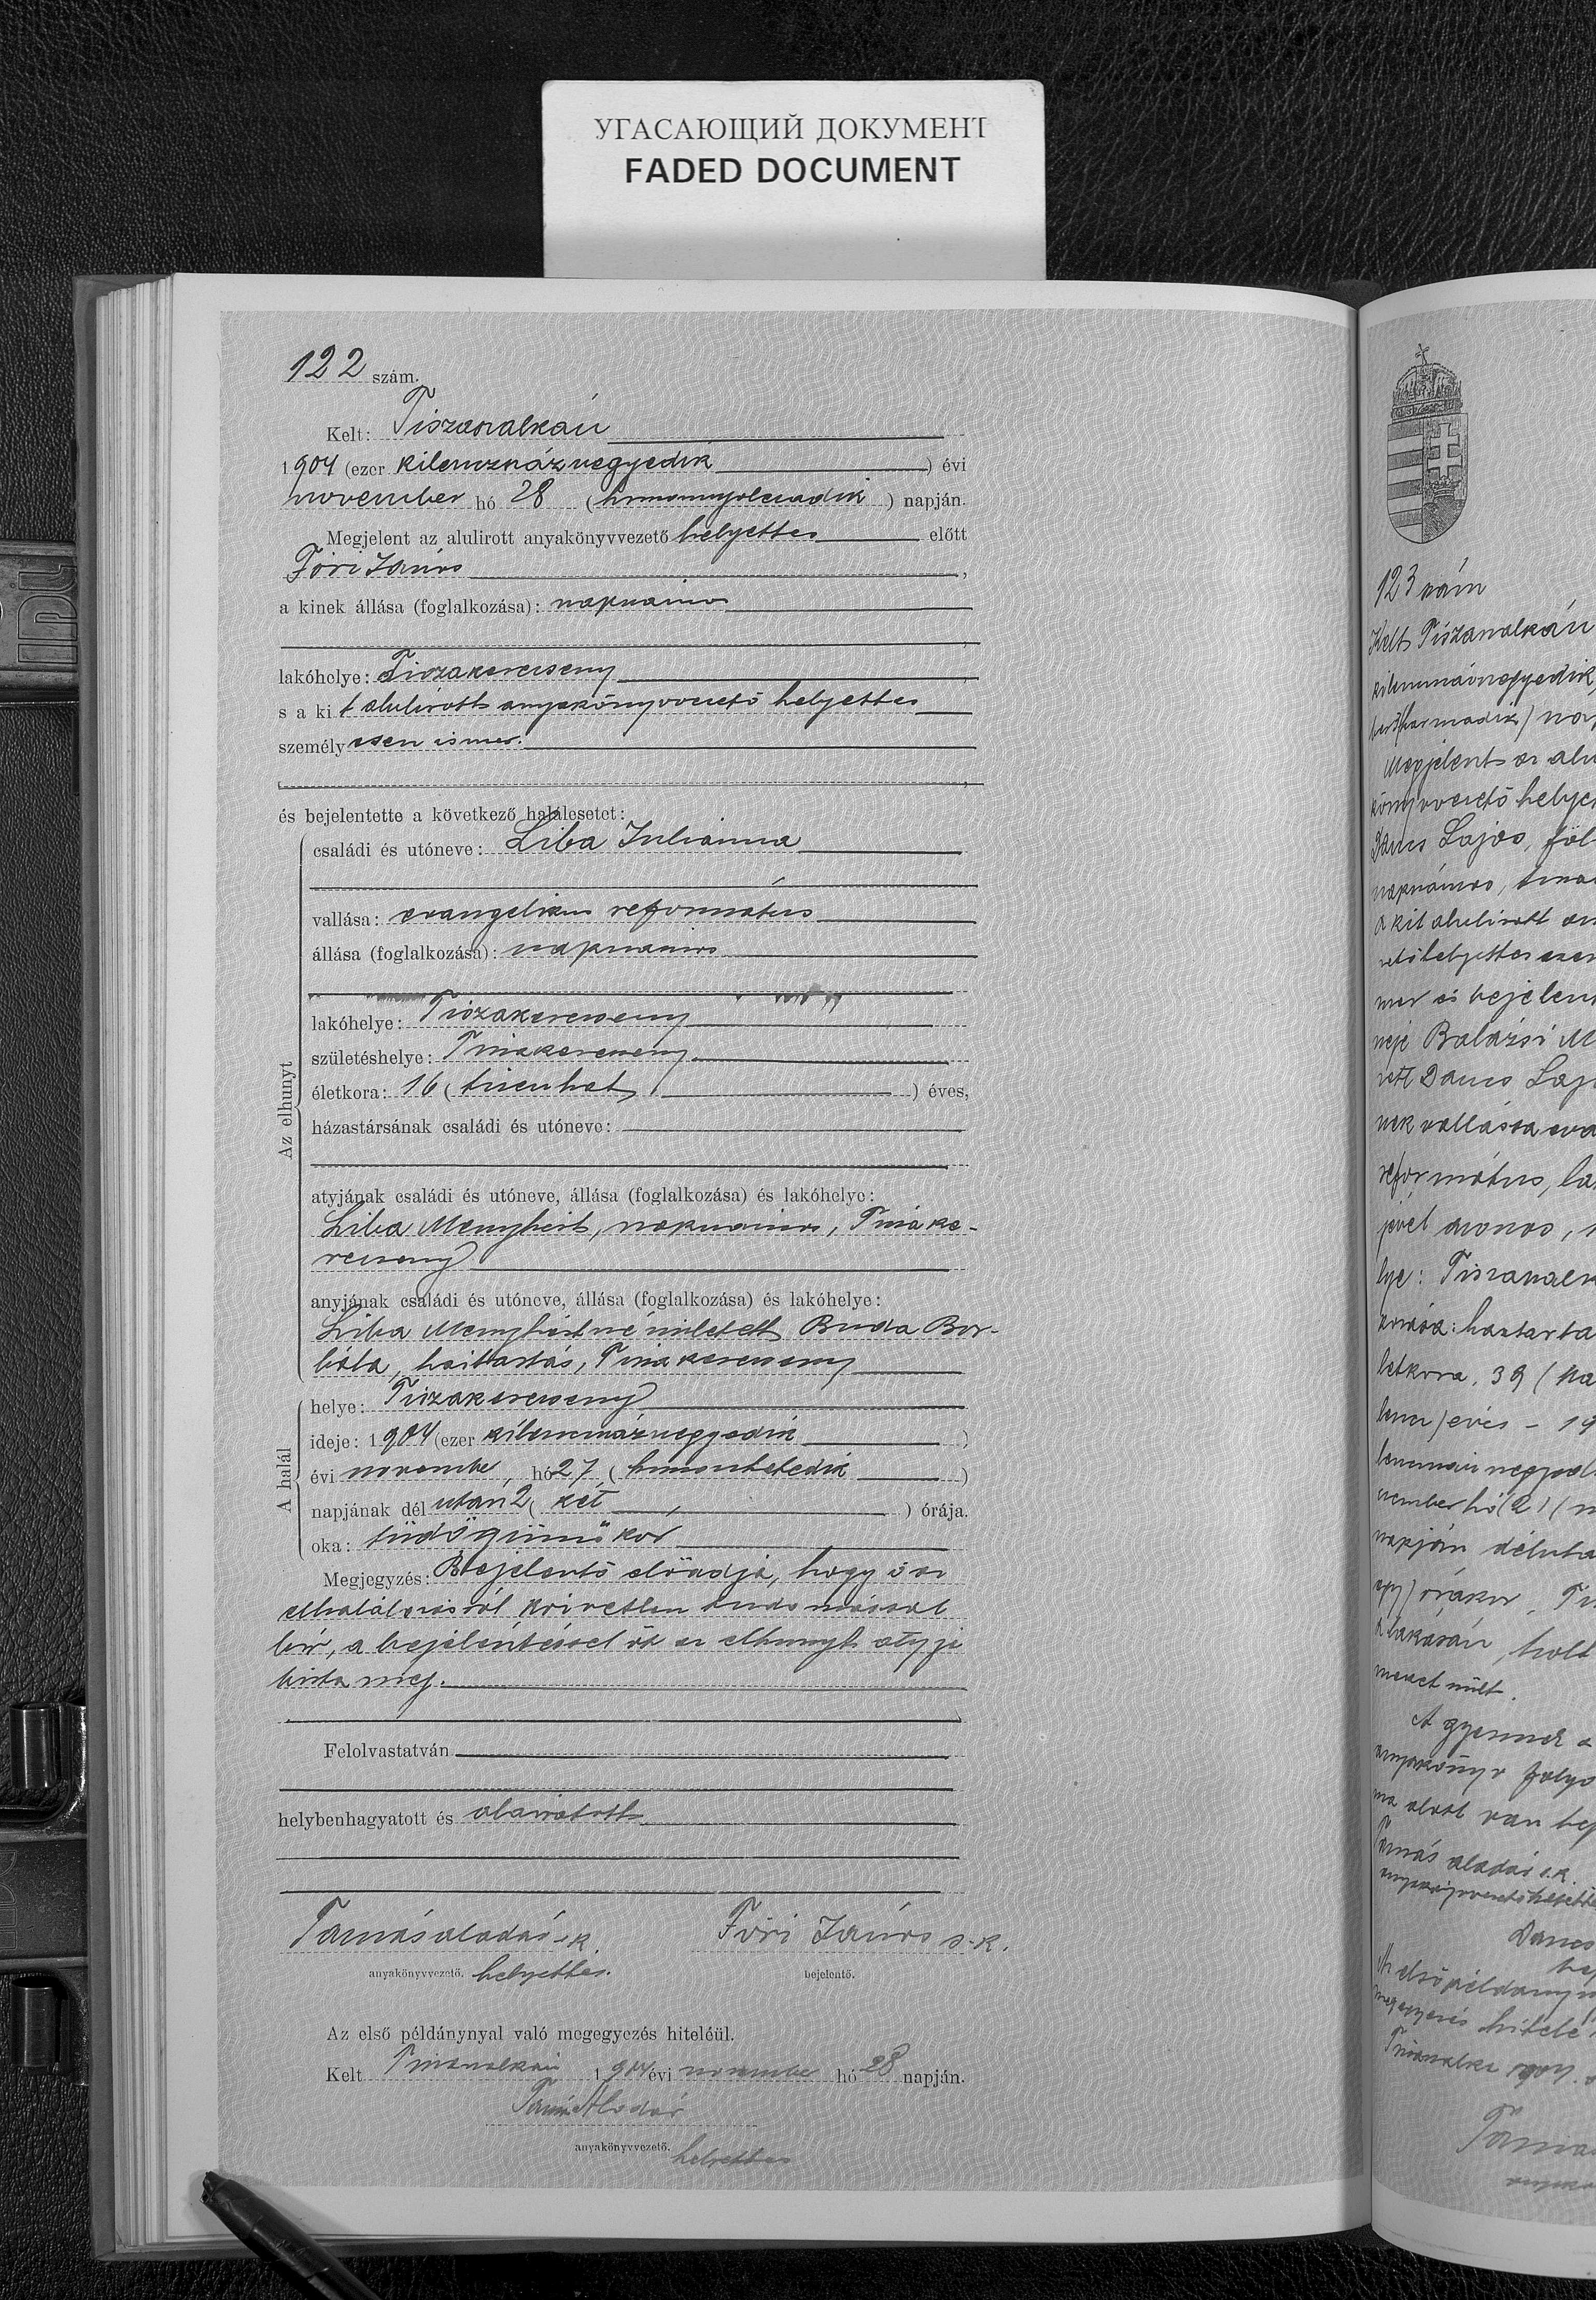 УГАСАЮЩИЙ ДОКУМЕНТ
FADED DOCUMENT
122 szám.
Kelt: Tiszaszalkán
1904 (ezer kilenczáznegyedik) évi
november hó 28 (husznnyolczadik) napján.
Megjelent az alulirott anyakönyvvezető helyettes előtt
Föri János,
a kinek állása (foglalkozása): napszámos
lakóhelye: Tiszakerecseny,
s a kit alulirott anyakönyvvezető helyettes
személyesen ismer.
és bejelentette a következő halálesetet:
Az elhunyt
családi és utóneve: Liba Julianna
vallása: evangelikus református
állása (foglalkozása): napszámos
lakóhelye: Tiszakerecseny
születéshelye: Tiszakerecseny
életkora: 16 (tizenhat) éves,
házastársának családi és utóneve:
atyjának családi és utóneve, állása (foglalkozása) és lakóhelye:
Liba Menyhért, napszámos, Tiszake-
recseny
anyjának családi és utóneve, állása (foglalkozása) és lakóhelye:
Liba Menyhértné született Buda Bor-
bála, háztartás, Tiszakerecseny
A halál
helye: Tiszakerecseny
ideje: 1904 (ezer kilenczáznegyedik)
évi november hó 27 (huszonhetedik)
napjának dél után 2 (két) órája.
oka: tüdőgümőkor
Megjegyzés: Bejelentő előadja, hogy ő az
elhalálozásról közvetlen tudomással
bir, a bejelentéssel őt az elhunyt atyja
bizta meg.
Felolvastatván
helybenhagyatott és aláiratott
Tamás Aladár s.k. Föri János s.k.
anyakönyvvezető. helyettes. bejelentő.
Az első példánynyal való megegyezés hiteléül.
Kelt Tiszaszalkán 1904 évi november hó 28 napján.
Tamás Aladár
anyakönyvvezető. helyettes
123 szám
Kelt Tiszaszalkán
kilenczáznegyedik
(harmadik)
Megjelent az alu
helye
Dancs Lajos, föl
napszámos,
a kit alulirott an
helyettes szem
mer és bejelen
neje Balázsi M
Dancs Laj
nek vallása eva
református, la
lye: Tiszaszalk
háztarta
letkora, 39 (ha
évés – 19
napján déluta
órakor, Ti
lakásán, holt
A gyermek a
anyakönyv folyó
ma alatt van bej
Tamás Aladár s.k.
Dancs
Az első példányn
megegyezés hitelé
1904.
Tamás